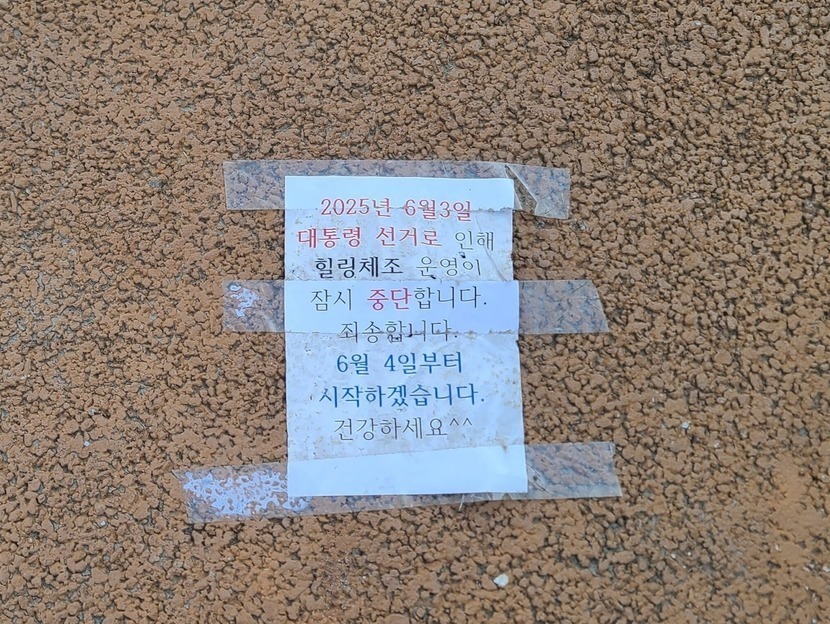 2025년 6월3일
대통령 선거로 인해
힐링체조 운영이
잠시 중단합니다.
죄송합니다.
6월 4일부터
시작하겠습니다.
건강하세요^^